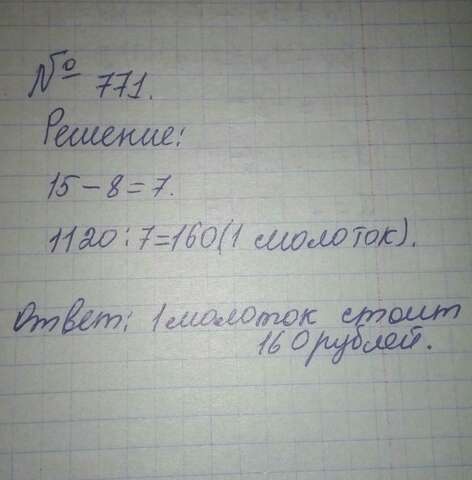 № 771.
Решение:
15-8=7.
1120:7=160(1 молоток).
Ответ: 1 молоток стоит
160 рублей.